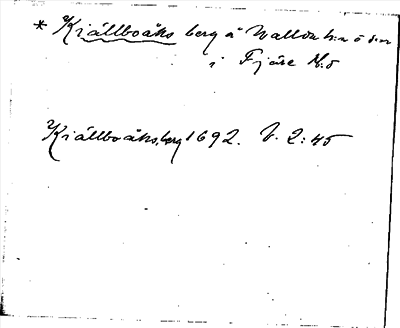 * Kiällboåks berg å Wallda h:n o s:n
i Fjäre N:o
Kiällboåks,berg 1692. V. 2:45